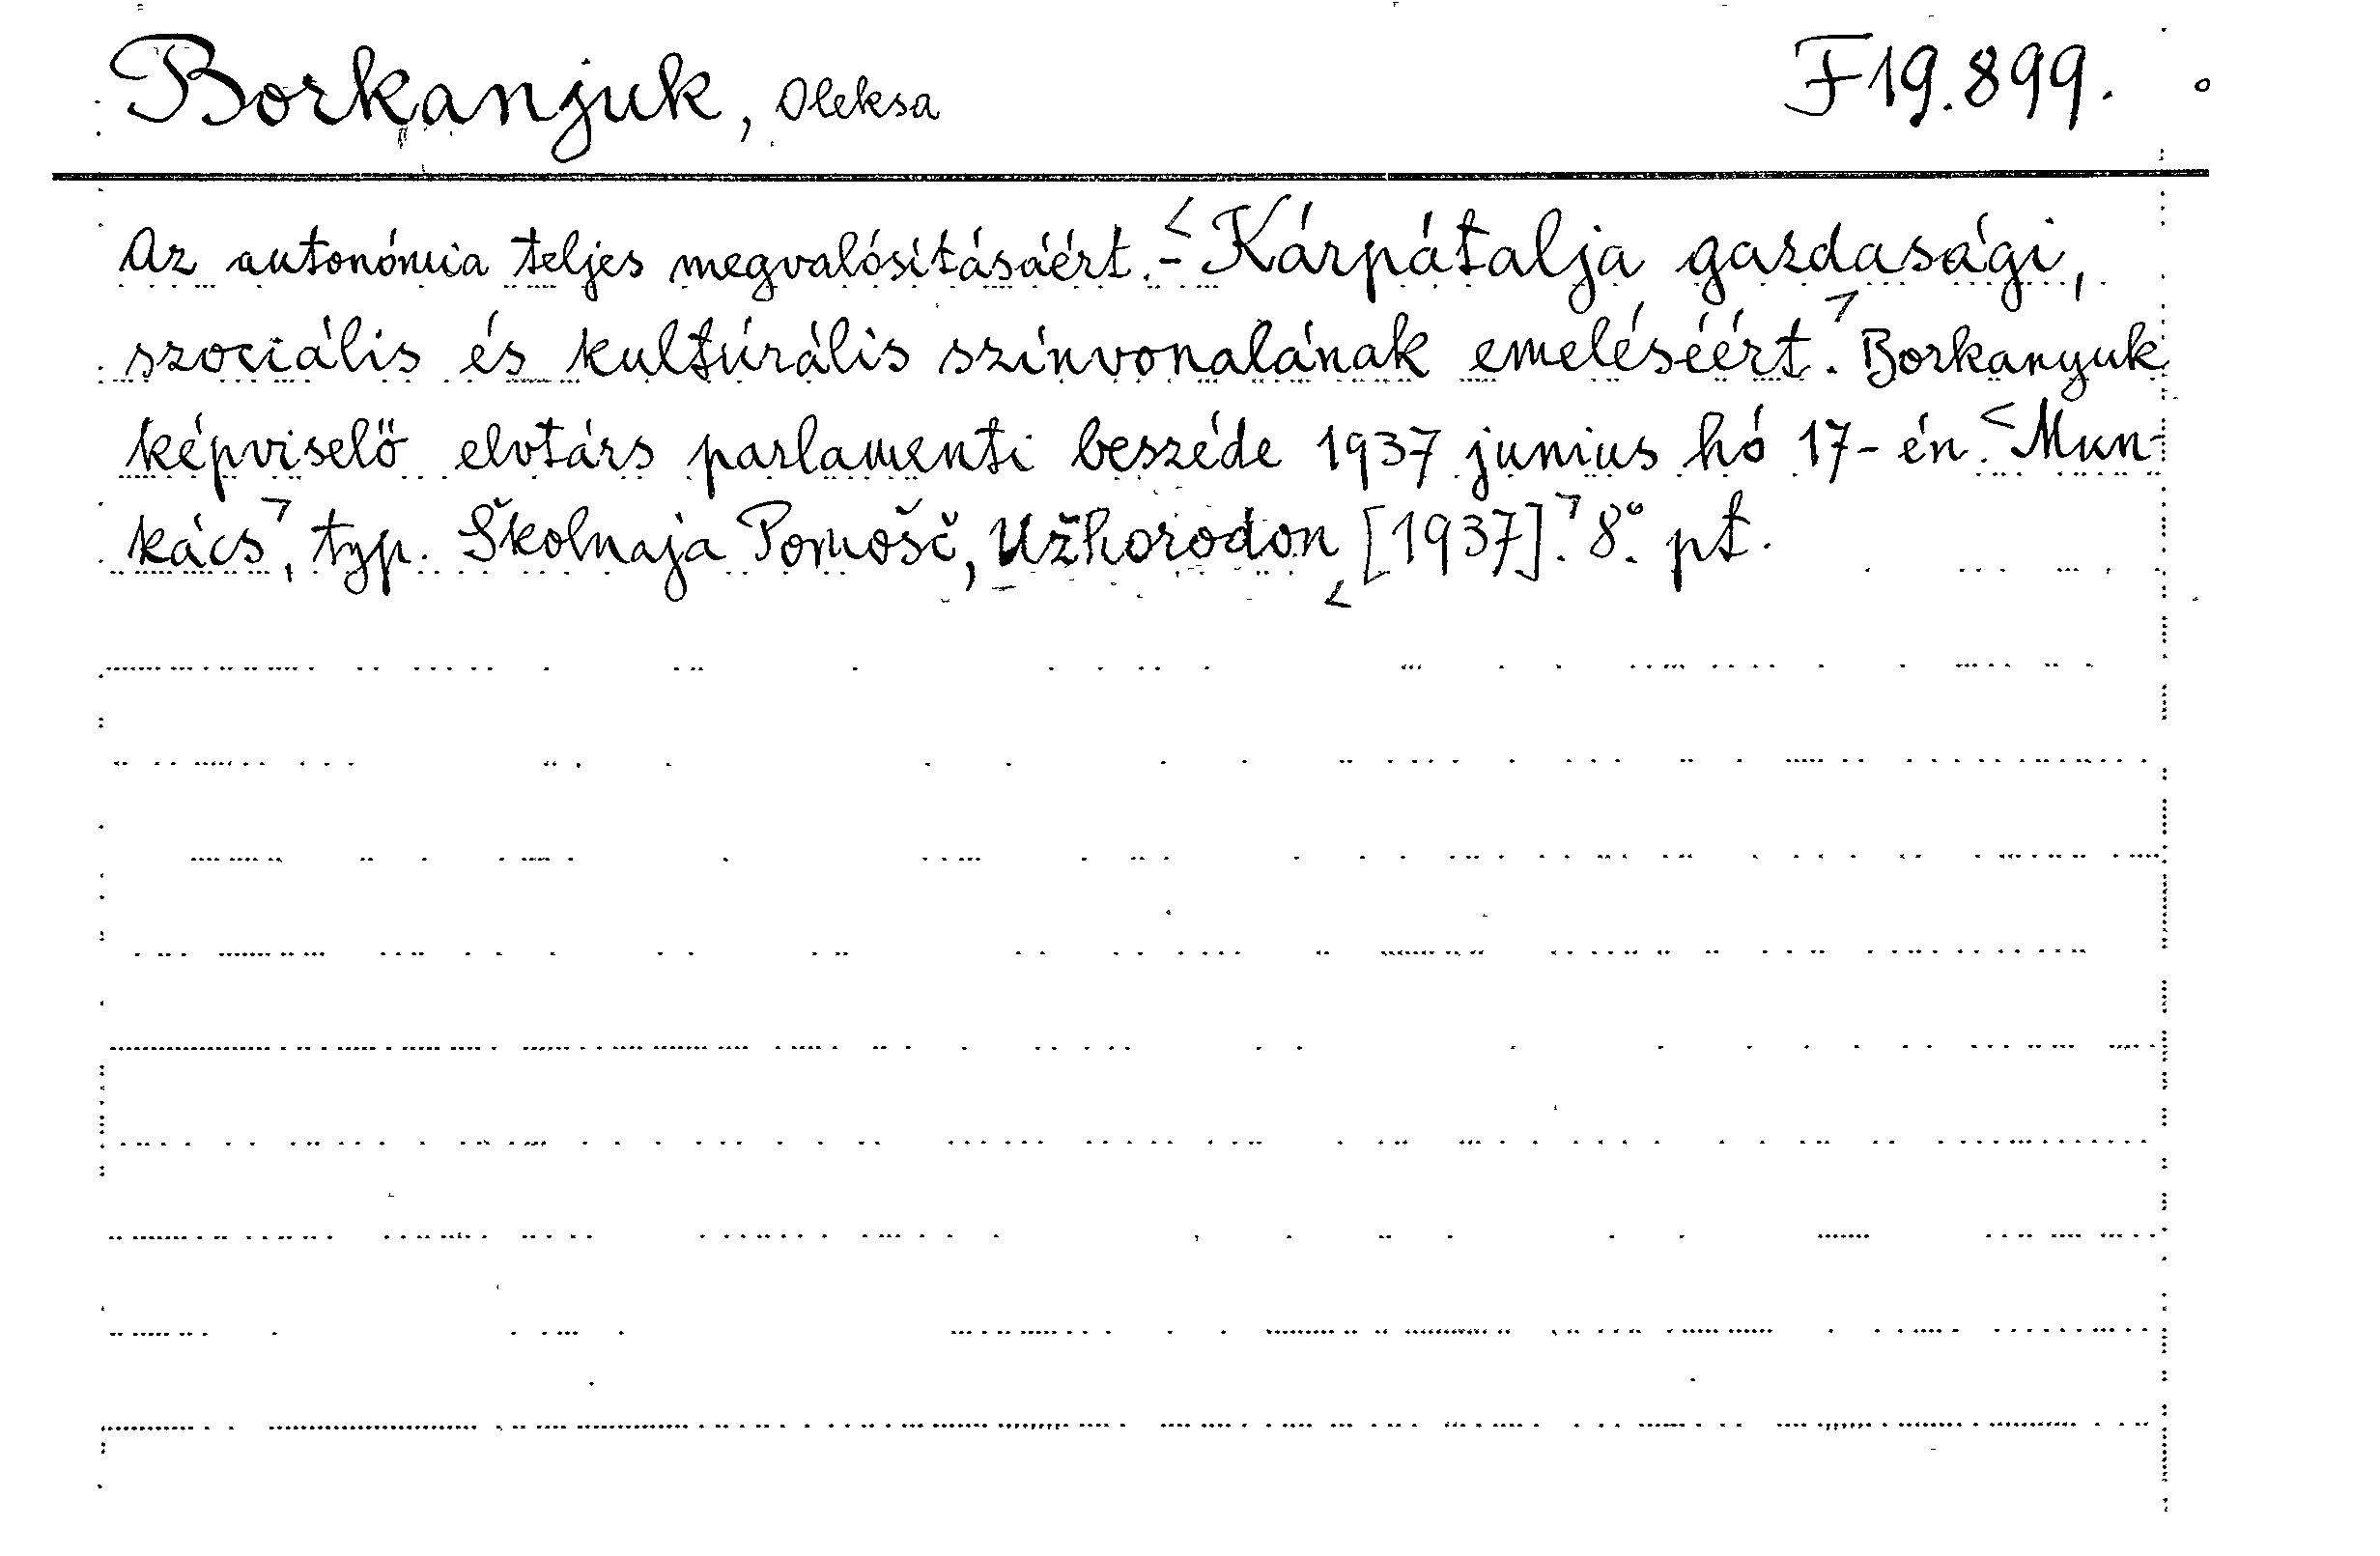 Borkanjuk, Oleksa F19.899.
Az autonómia teljes megvalósításáért. - <Kárpátalja gazdasági,
szociális és kultúrális színvonalának emeléséért>. Borkanyuk
képviselő elvtárs parlamenti beszéde 1937 junius hó 17-én. <Mun-
kács>, typ. Školnaja Pomošč, Užhorodon <[1937].> 8° pt.